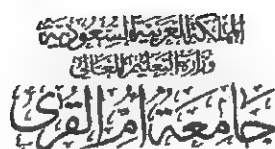 المملكة العربية السعودية
وزارة التعليم العالي
جامعة أم القرى